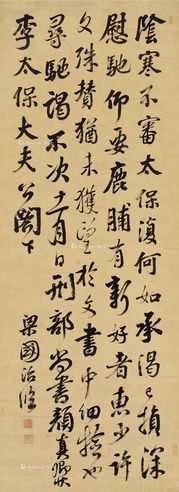 陰寒不審太保復何如承渴已損深
慰馳仰要鹿脯有新好者惠少許
文殊贊猶未獲望於文書中細撿也
尋馳謁不次十一月日刑部尚書顏真卿
李太保大夫公閣下
梁國治臨